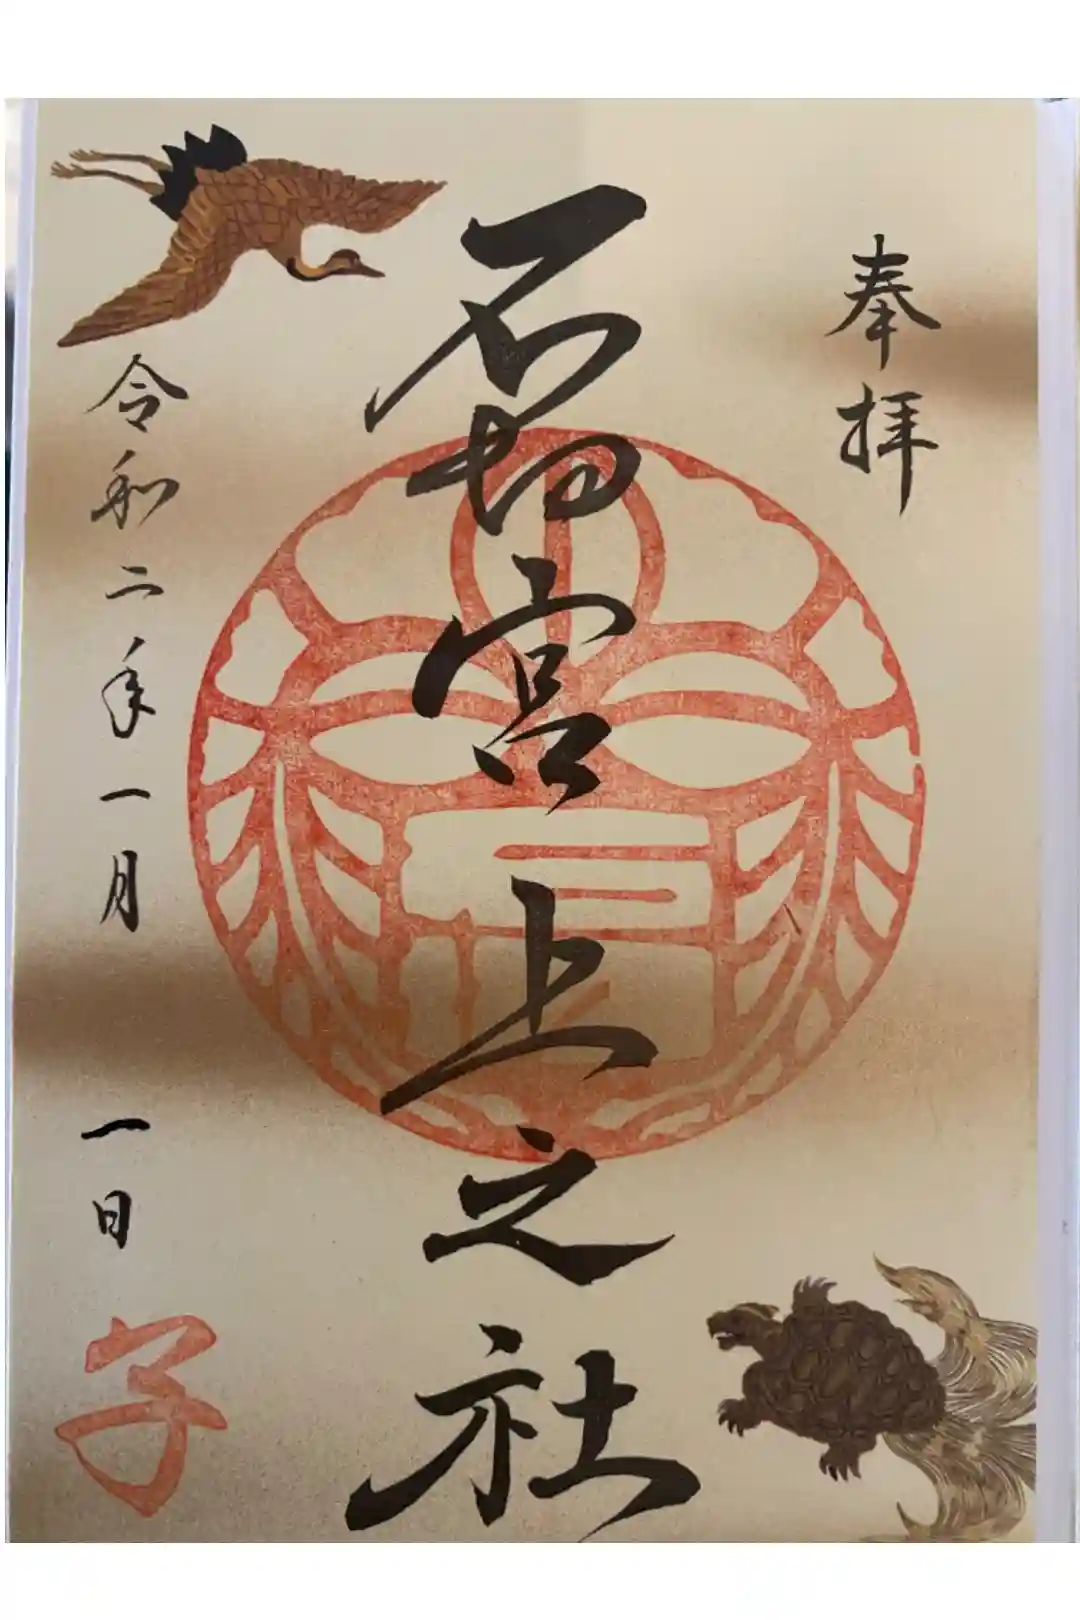 奉拝
石切宮上之社
令和二年一月 一日
子